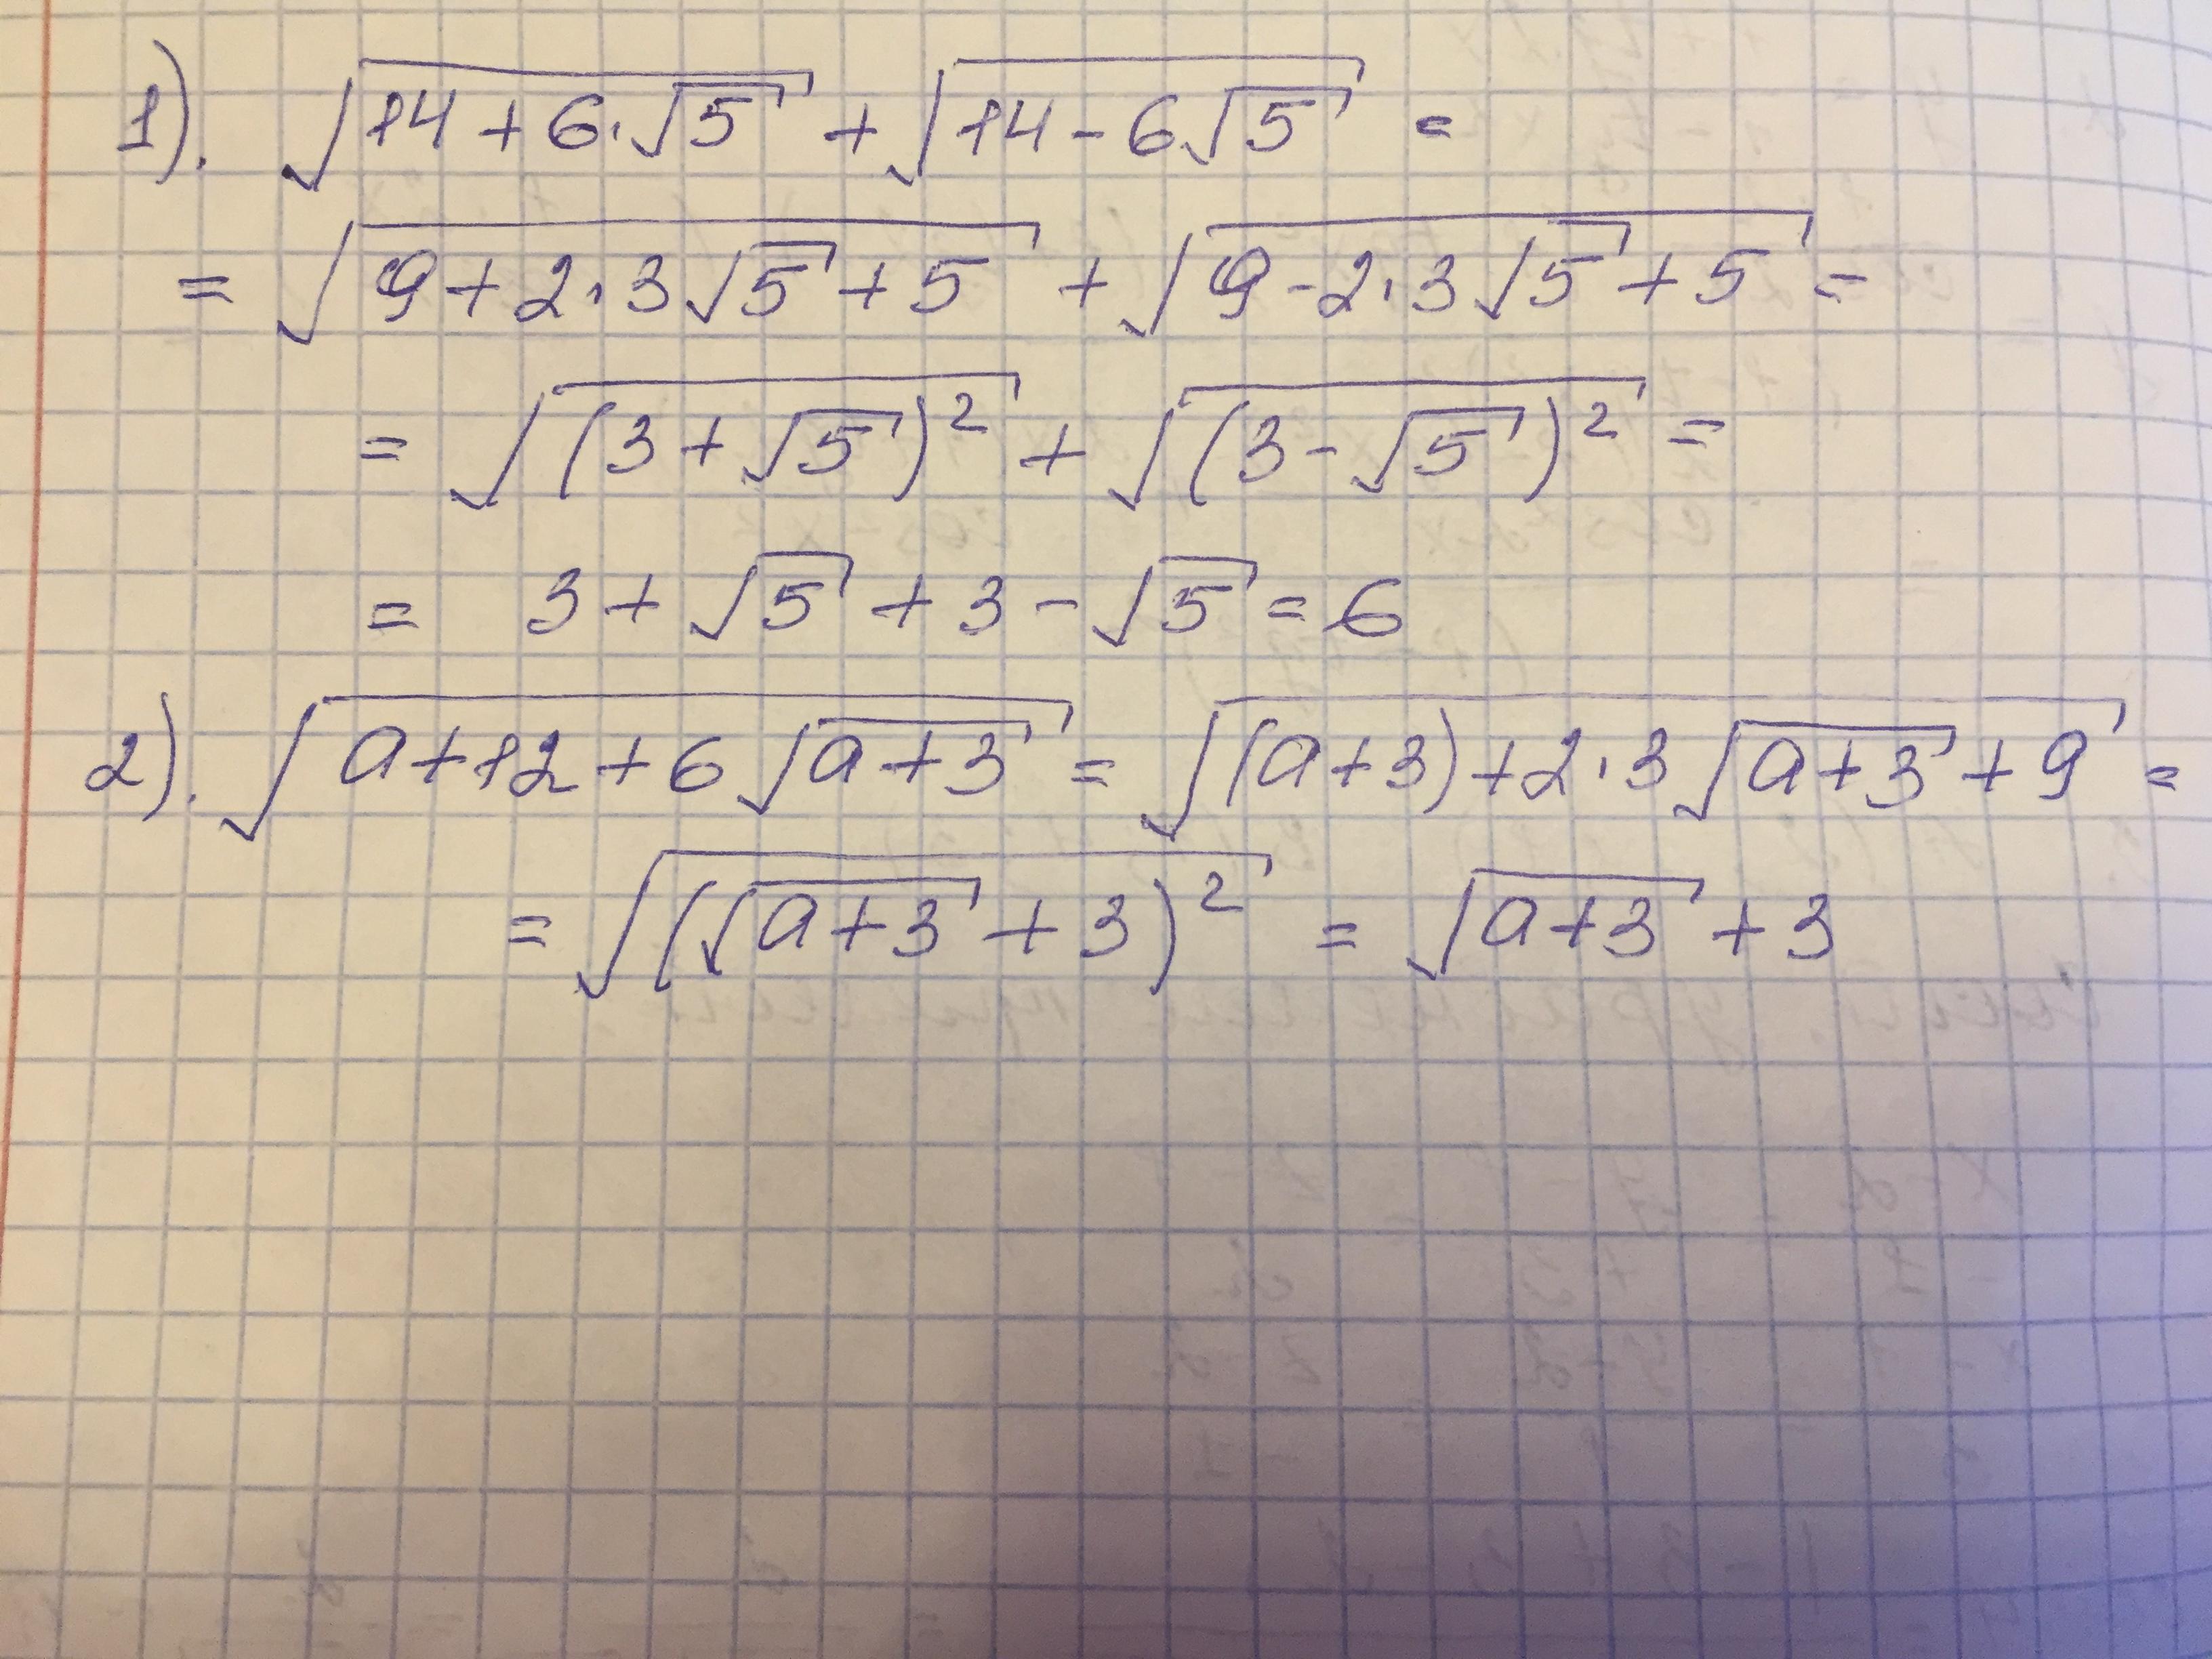 1). √(14 + 6·√5) + √(14 - 6√5) =
= √(9 + 2·3√5 + 5) + √(9 - 2·3√5 + 5) =
= √((3 + √5)²) + √((3 - √5)²) =
= 3 + √5 + 3 - √5 = 6
2). √(a + 12 + 6√(a + 3)) = √((a + 3) + 2·3√(a + 3) + 9) =
= √((√(a + 3) + 3)²) = √(a + 3) + 3